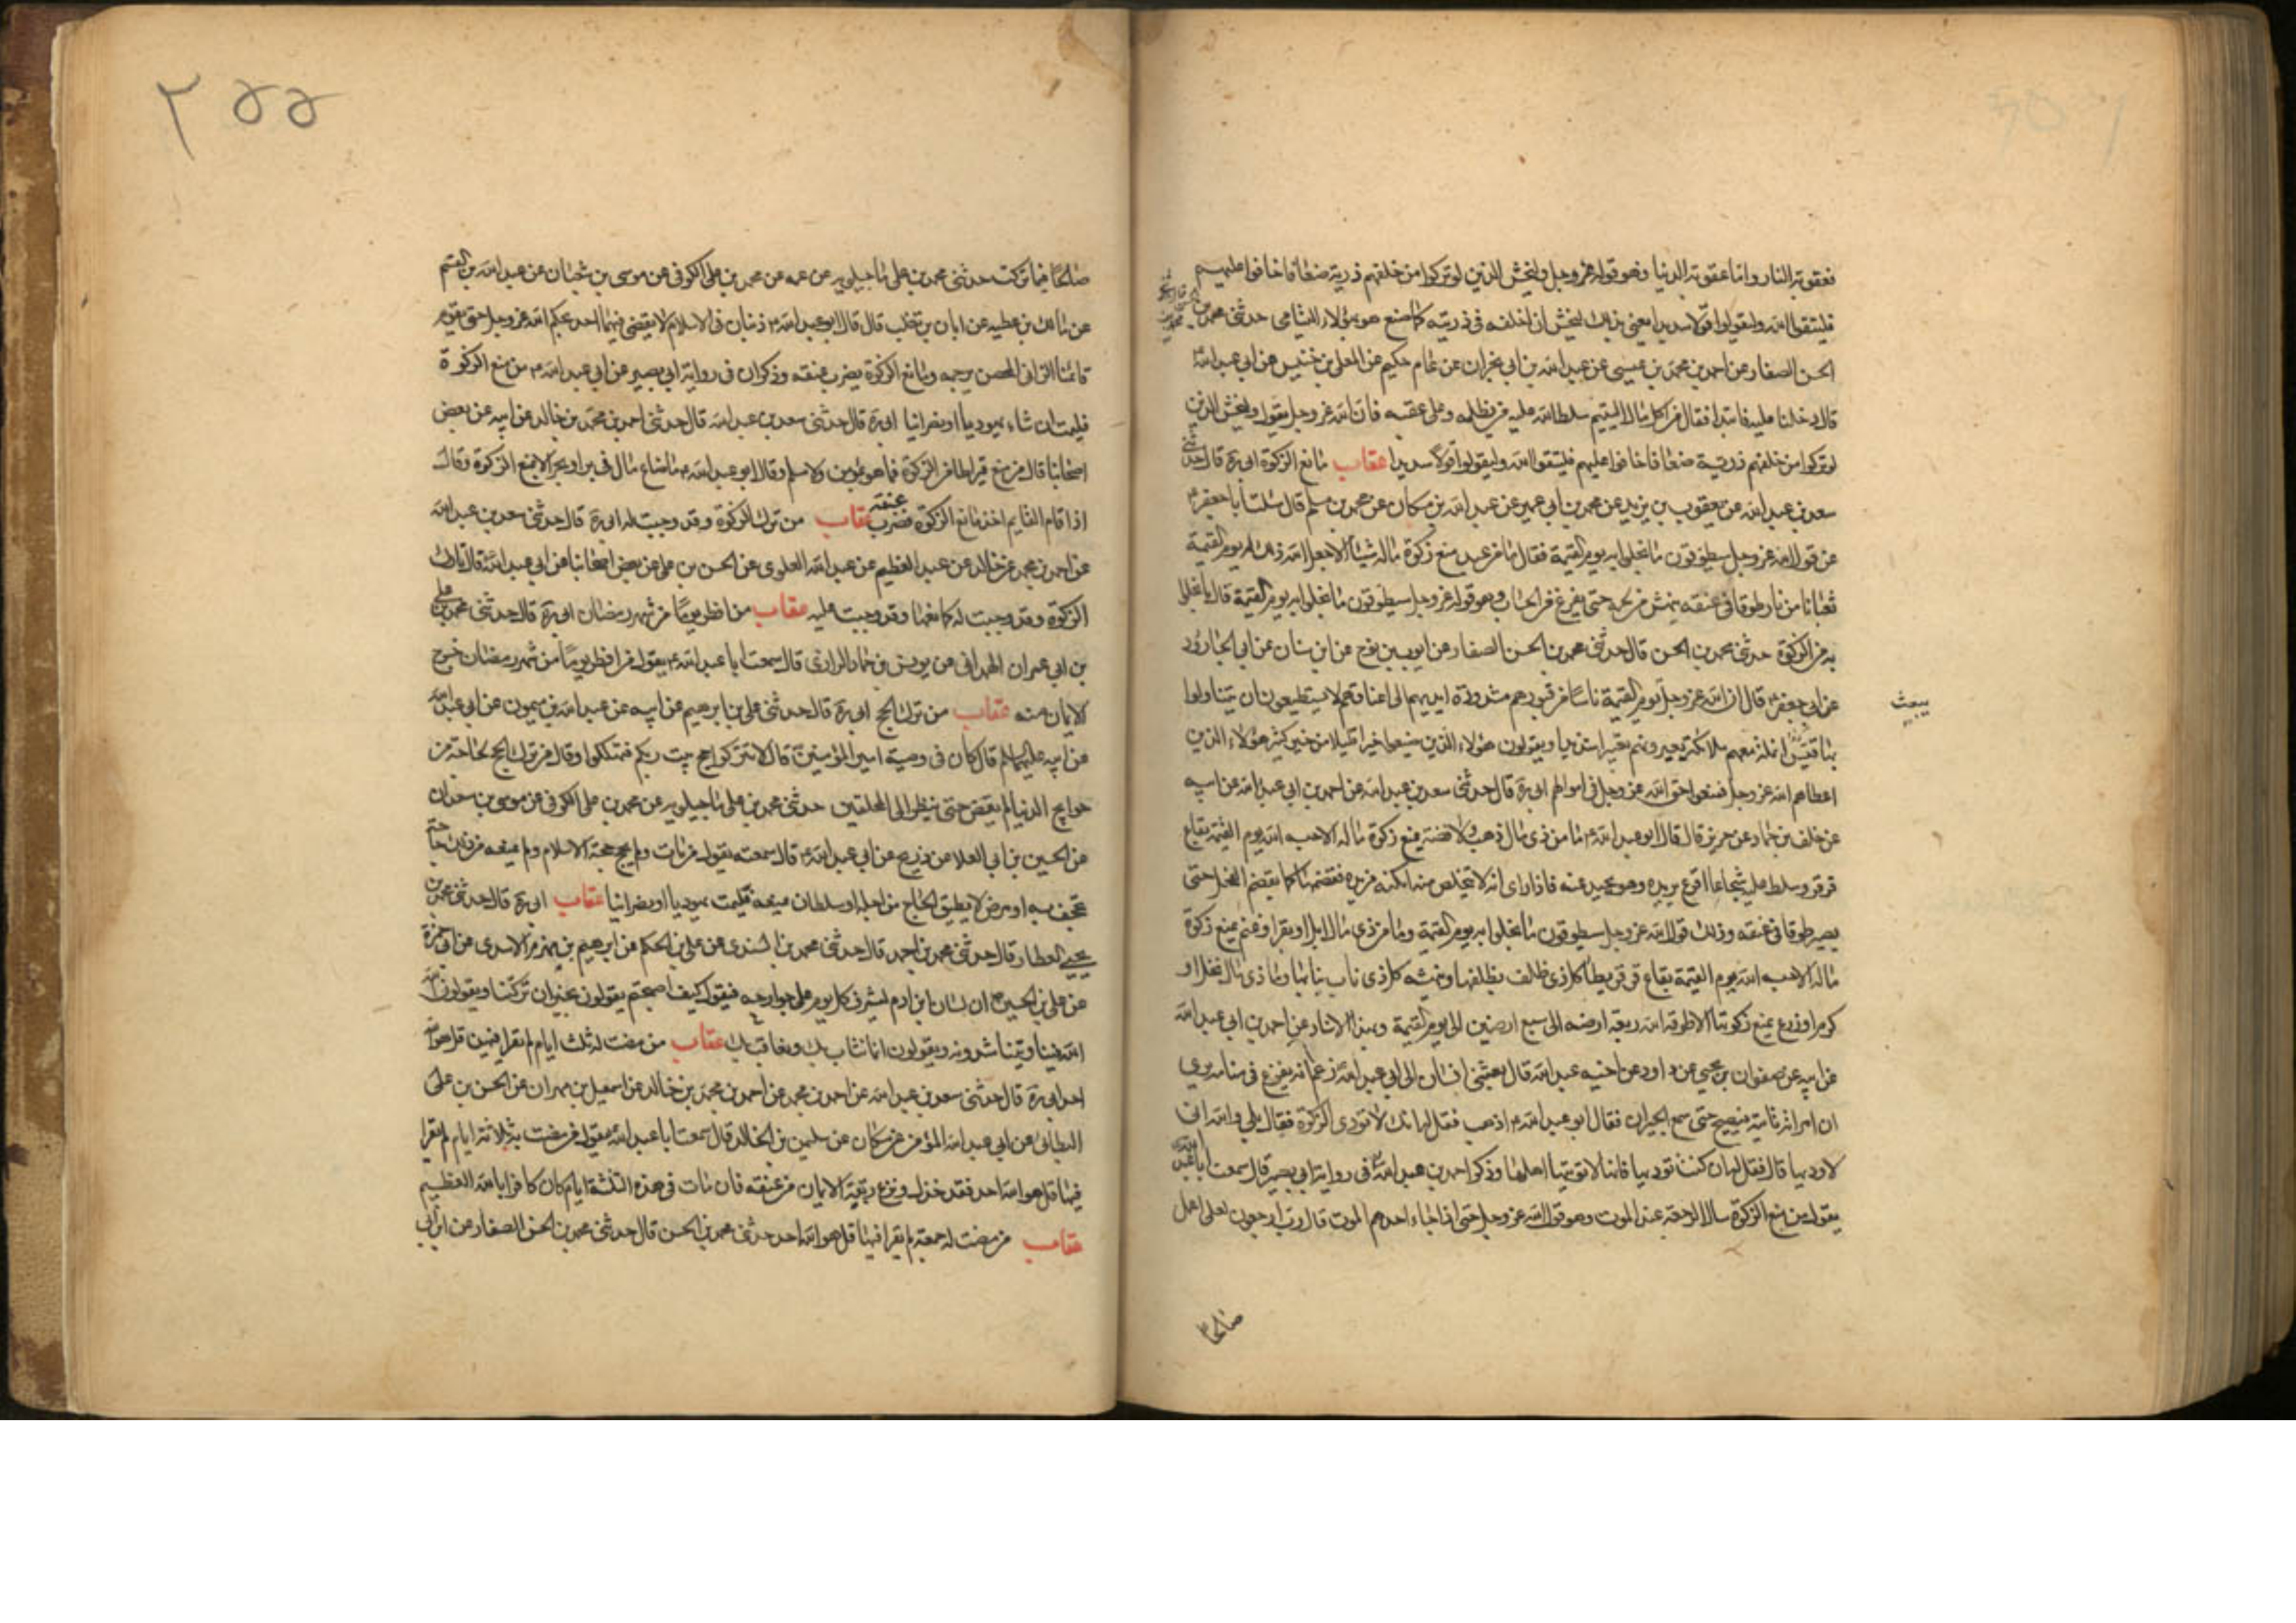 فعقوبة النار واما عقوبة الدنيا وهو قوله عز وجل وليخش الذين لو تركوا من خلفهم ذرية ضعافا خافوا عليهم
فليتقوا الله وليقولوا قولا سديدا يعني بذلك ليخش ان اخلفه في ذريته كما صنع هو بهؤلاء اليتامى حدثني محمد بن
الحسن الصفار عن احمد بن محمد بن عيسى عن عبد الله بن ابي نجران عن عمام حكيم عن المعلى بن خنيس عن ابي عبد الله ع
قال دخلنا عليه فابتدا فقال من اكل مال اليتيم سلط الله عليه من يظلمه وعلى عقبه فان الله عز وجل يقول وليخش الذين
لو تركوا من خلفهم ذرية ضعافا خافوا عليهم فليتقوا الله وليقولوا قولا سديدا عقاب مانع الزكوة ابي ره قال حدثني
سعد بن عبد الله عن يعقوب بن يزيد عن محمد بن ابي عمير عن عبد الله بن مسكان عن محمد بن مسلم قال سئلت ابا جعفر ع
عن قول الله عز وجل سيطوقون ما بخلوا به يوم القيمة فقال ما من عبد منع زكوة ماله شيئا الا جعل الله ذلك له يوم القيمة
ثعبانا من نار طوقا في عنقه ينهش من لحمه حتى يفرغ من الحساب وهو قوله عز وجل سيطوقون ما بخلوا به يوم القيمة قال ما بخلوا
به من الزكوة حدثني محمد بن الحسن قال حدثني محمد بن الحسن الصفار عن ايوب بن نوح عن ابن سنان عن ابي الجارود
عن ابي جعفر ع قال ان الله عز وجل يوم القيمة ناسا من قبورهم مشدودة ايديهم الى اعناقهم لا يستطيعون ان يتناولوا
يبعث
بها قيس انملة معهم ملائكة يعيرونهم تعييرا شديدا ويقولون هؤلاء الذين منعوا خيرا قليلا من خير كثير هؤلاء الذين
اعطاهم الله عز وجل فمنعوا حق الله عز وجل في اموالهم ابي ره قال حدثني سعد بن عبد الله عن احمد بن ابي عبد الله عن ابيه
عن خلف بن حماد عن حريز قال قال ابو عبد الله ع ما من ذي مال ذهب ولا فضة يمنع زكوة ماله الا حبسه الله يوم القيمة بقاع
قرقر وسلط عليه شجاعا اقرع يريده وهو يحيد عنه فاذا راى انه لا يتخلص منه امكنه من يده فقضمها كما يقضم الفحل حتى
يصير طوقا في عنقه وذلك قول الله عز وجل سيطوقون ما بخلوا به يوم القيمة وما من ذي مال ابل او بقر او غنم يمنع زكوة
ماله الا حبسه الله يوم القيمة بقاع قرقر يطأ كل ذي ظلف بظلفها وينهشه كل ذي ناب بنابها وما ذي مال نخل او
كرم او زرع يمنع زكوتها الا طوقه الله ربقة ارضه الى سبع ارضين الى يوم القيمة وبهذا الاسناد عن احمد بن ابي عبد الله
عن ابيه عن صفوان بن يحيى عن داود عن اخيه عبد الله قال بعثني انسان الى ابي عبد الله ع زعم انه يفزع في منامه يرى
ان امراة تاتيه فيصيح حتى سمع الجيران فقال ابو عبد الله ع اذهب فقل له انك لا تؤدي الزكوة فقال بلى والله اني
لاوديها قال فقل له ان كنت تؤديها فانما لا تؤتيها اهلها وذكر احمد بن عبد الله في رواية ابي بصير قال سمعت ابا عبد الله
يقول من منع الزكوة سال الرجعة عند الموت وهو قول الله عز وجل حتى اذا جاء احدهم الموت قال رب ارجعون لعلي اعمل
صالحا
٢٥٥
صالحا فيما تركت حدثني محمد بن علي ماجيلويه عن عمه عن محمد بن علي الكوفي عن موسى بن سعدان عن عبد الله بن القسم
عن مالك بن عطية عن ابان بن تغلب قال قال ابو عبد الله ع دمان في الاسلام لا يقضي فيهما احد بحكم الله عز وجل حتى يقوم
قائمنا الزاني المحصن يرجمه ومانع الزكوة يضرب عنقه وذكر ان في رواية ابي بصير عن ابي عبد الله ع من منع الزكوة
فليمت ان شاء يهوديا او نصرانيا ابي ره قال حدثني سعد بن عبد الله قال حدثني احمد بن محمد بن خالد عن ابيه عن بعض
اصحابنا قال من منع قيراطا من الزكوة فما هو بمؤمن ولا مسلم وقال ابو عبد الله ع ما ضاع مال في بر او بحر الا بمنع الزكوة وقال
اذا قام القايم اخذ مانع الزكوة فضرب عنقه عقاب من ترك الزكوة وقد وجبت له ابي ره قال حدثني سعد بن عبد الله
عن احمد بن محمد عن خالد عن عبد العظيم عن عبد الله العلوي عن الحسن بن علي عن بعض اصحابنا عن ابي عبد الله ع قال تارك
الزكوة وقد وجبت له كمانعها وقد وجبت عليه عقاب من افطر يوما من شهر رمضان ابي ره قال حدثني محمد بن علي
بن ابي عمران الهمداني عن يونس بن حماد الرازي قال سمعت ابا عبد الله ع يقول من افطر يوما من شهر رمضان خرج
الايمان منه عقاب من ترك الحج ابي ره قال حدثني علي بن ابرهيم عن ابيه عن عبد الله بن ميمون عن ابي عبد الله
عن ابيه عليهما السلم قال كان في وصية امير المؤمنين ع قال لا تتركوا حج بيت ربكم فتهلكوا وقال من ترك الحج لحاجة من
حوايج الدنيا لم يقض حتى ينظر الى المحلقين حدثني محمد بن علي ماجيلويه عن محمد بن علي الكوفي عن موسى بن سعدان
عن الحسين بن ابي العلا عن ذريح عن ابي عبد الله ع قال سمعته يقول من مات ولم يحج حجة الاسلام ولم يمنعه من ذلك حاجة
تجحف به او مرض لا يطيق الحاج من اجله او سلطان يمنعه فليمت يهوديا او نصرانيا عقاب ابي ره قال حدثني محمد بن
يحيى العطار قال حدثني محمد بن احمد قال حدثني محمد بن السندي عن علي بن الحكم عن ابرهيم بن مهزم الاسدي عن ابي حمزة
عن علي بن الحسين ع ان لسان ابن ادم ليشرف كل يوم على جوارحه فيقول كيف اصبحتم يقولون بخير ان تركتنا ويقولون الله
الله فينا ويناشدونه ويقولون انما نثاب بك ونعاقب بك عقاب من مضت له ثلث ايام لم يقرا فيهن قل هو الله
احد ابي ره قال حدثني سعد بن عبد الله عن احمد بن محمد عن احمد بن محمد بن خالد عن اسمعيل بن مهران عن الحسن بن علي
البطاني عن ابي عبد الله المؤمن عن مسكان عن سليمن بن الخالد قال سمعت ابا عبد الله ع يقول من مضت به ثلاثة ايام لم يقرا
فيها قل هو الله احد فقد خذل ونزع ربقة الايمان من عنقه فان مات في هذه الثلثة ايام كان كافرا بالله العظيم
عقاب من مضت له جمعة لم يقرا فيها قل هو الله احد حدثني محمد بن الحسن قال حدثني محمد بن الحسن الصفار عن ابن ابي